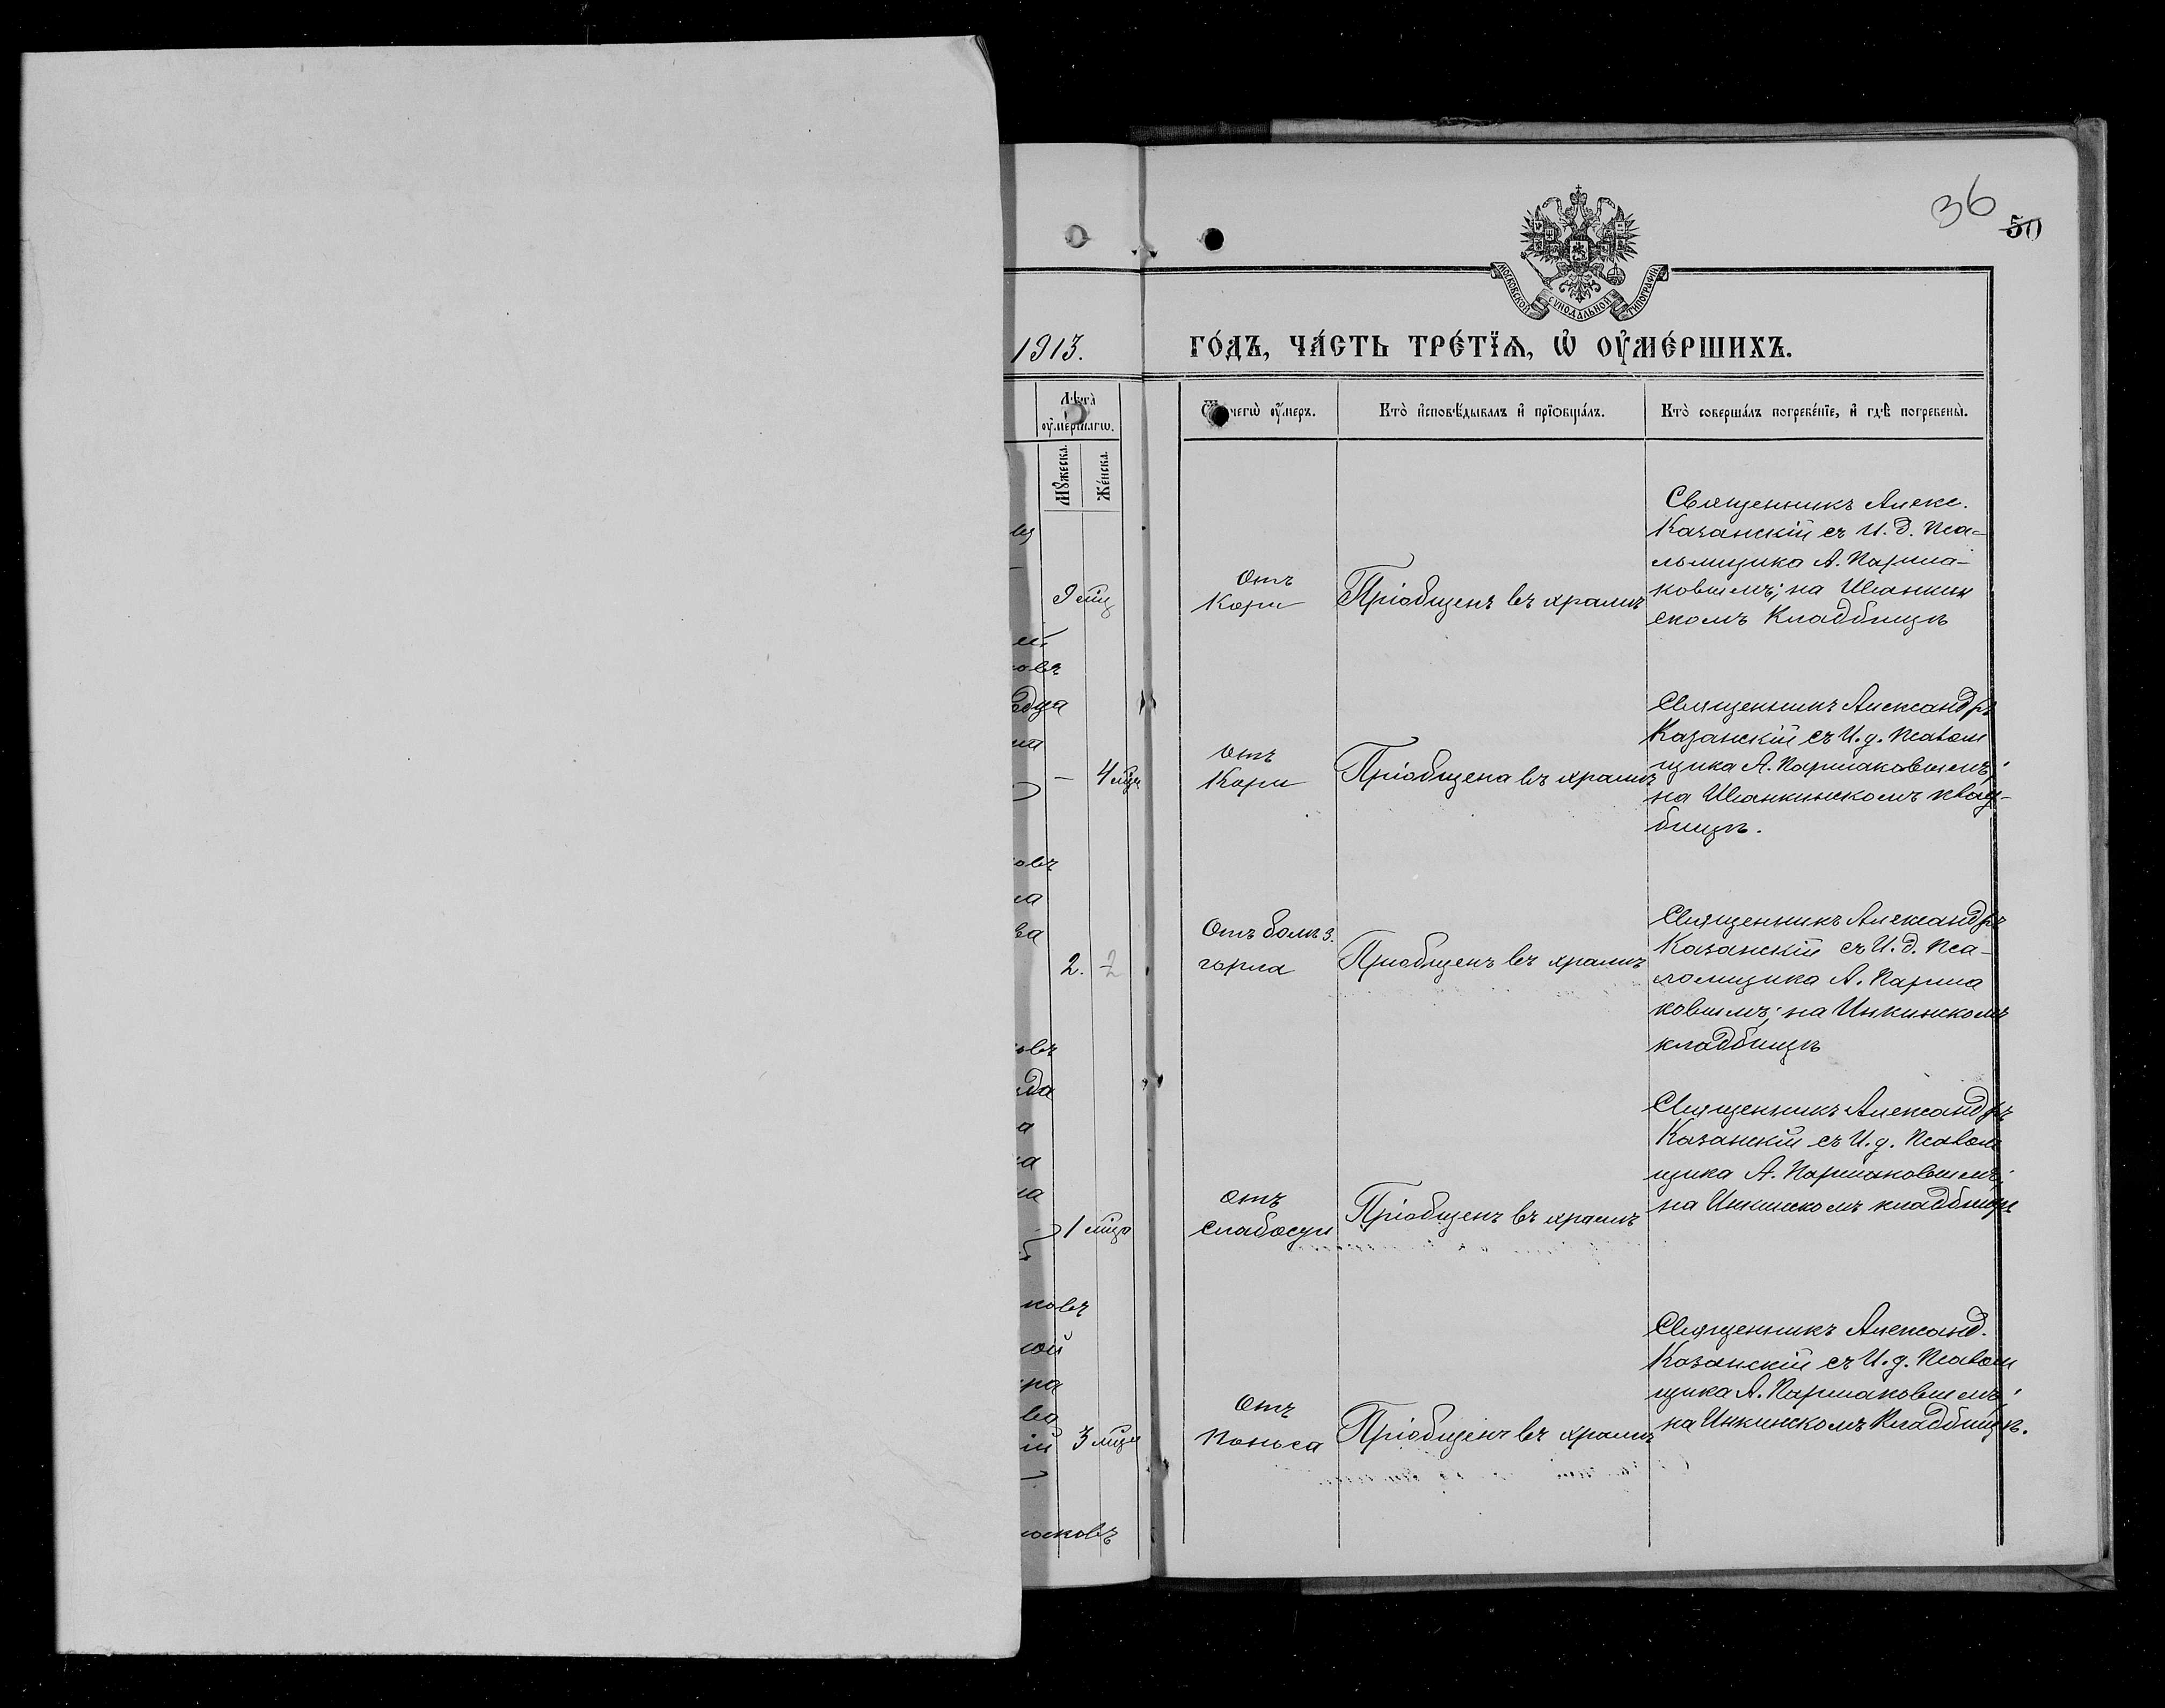 36
50
МОСКОВСКОЙ СУНОДАЛЬНОЙ ТИПОГРАФІИ
1913.
ГО́ДЪ, ЧА́СТЬ ТРЕ́ТЇѦ, Ѡ҆ ОУ҆МЕ́РШИХЪ.
Лѣ́та̀
оу҆ме́ршагѡ.
Мꙋ́жеска.
Же́нска.
Ѿ чегѡ̀ оу҆́меръ.
Кто̀ и҆сповѣ́дывалъ и҆ прїѡбща́лъ.
Кто̀ соверша́лъ погребе́нїе, и҆ гдѣ̀ погребены̀.
9 мѣс
Отъ
Кори
Пріобщенъ въ храмѣ
Священникъ Алекс.
Казанскій съ И. д. Пса-
ломщика А. Парша-
ковымъ; на
скомъ Кладбищѣ
овъ
— 4 мѣс
Отъ
Кори
Пріобщена въ храмѣ
Священникъ Александръ
Казанскій съ И. д. Псалом
щика А. Паршаковымъ;
на клад-
бищѣ.
овъ
2. 2
Отъ болѣз.
горла
Пріобщенъ въ храмѣ
Священникъ Александръ
Казанскій съ И. д. Пса-
ломщика А. Парша
ковымъ; на Инкинскомъ
кладбищѣ
овъ
1 мѣс
Отъ
Слабости
Пріобщенъ въ храмѣ
Священникъ Александръ
Казанскій съ И. д. Псалом
щика А. Паршаковымъ;
на Инкинскомъ кладбищѣ
ковъ
3 мѣс
Отъ
Поноса
Пріобщенъ въ храмѣ
Священникъ Александ.
Казанскій съ И. д. Псалом
щика А. Паршаковымъ;
на Инкинскомъ Кладбищѣ.
ковъ